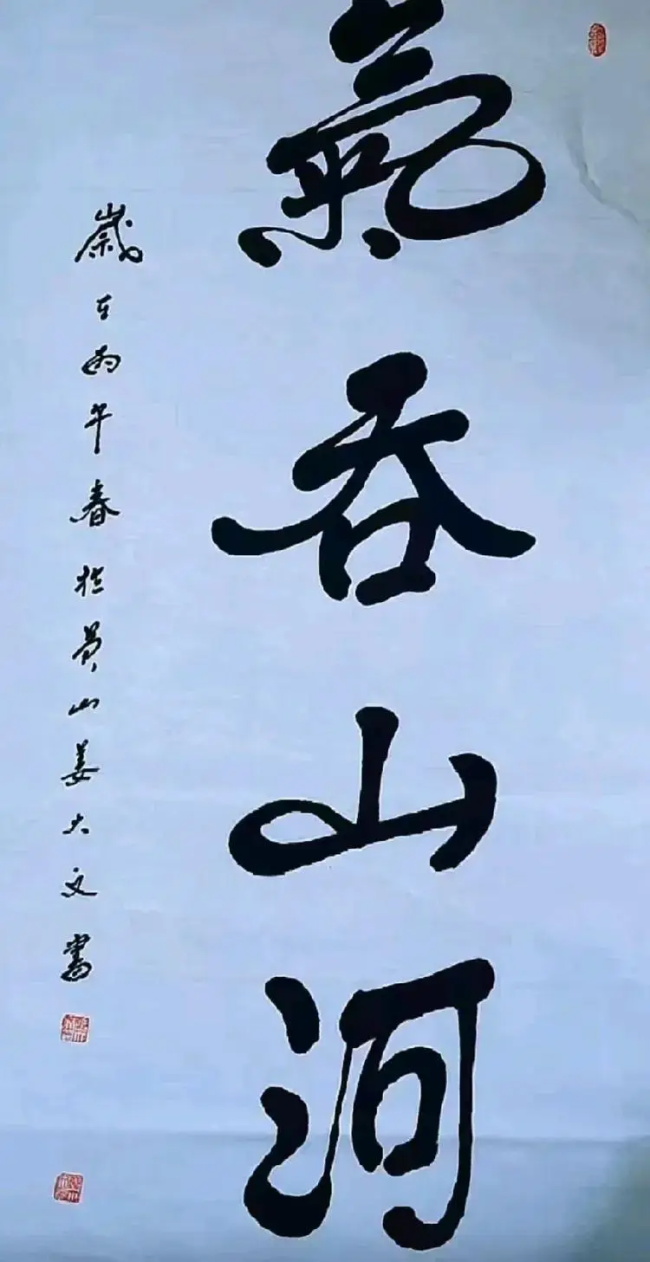 氣吞山河
歲在丙午春於山姜大文書